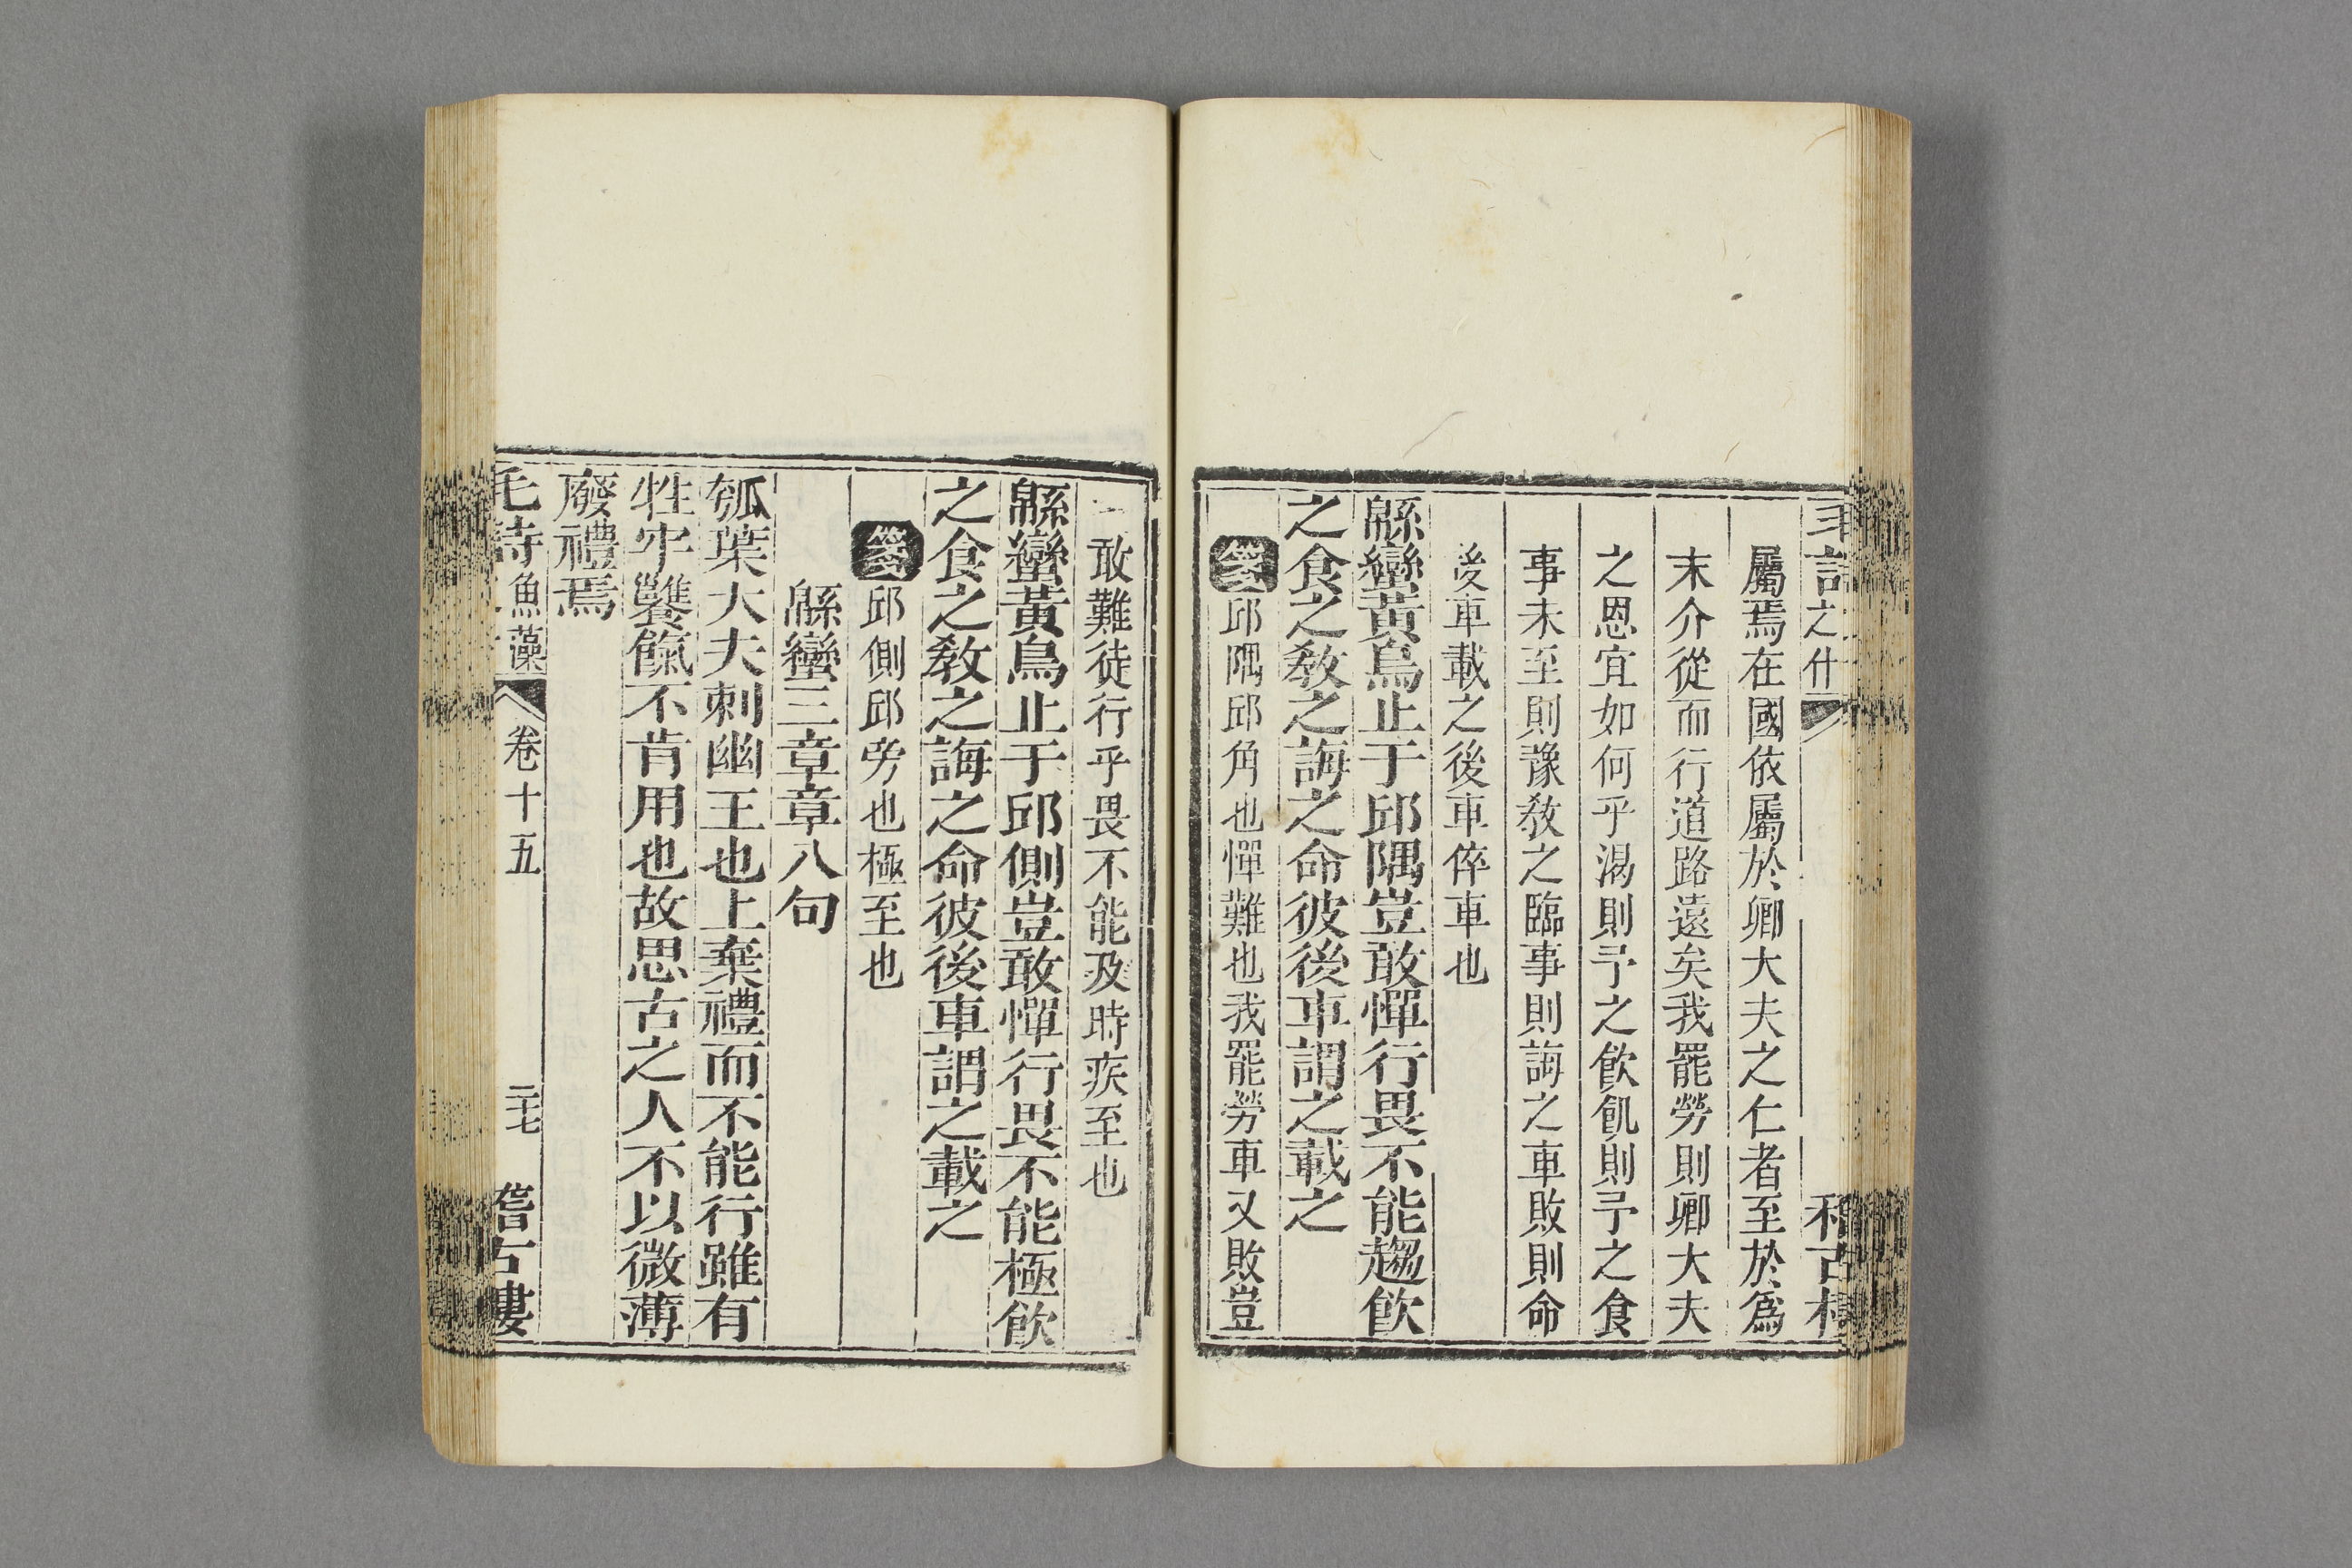 之什
屬焉在國依屬於卿大夫之仁者至於爲
末介從而行道路遠矣我罷勞則卿大夫
之恩宜如何乎渴則予之飲飢則予之食
事未至則豫敎之臨事則誨之車敗則命
後車載之後車倅車也
緜蠻黃鳥止于邱隅豈敢憚行畏不能趨飮
之食之敎之誨之命彼後車謂之載之
箋邱隅邱角也憚難也我罷勞車又敗豈
敢難徒行乎畏不能及時疾至也
緜蠻黃鳥止于邱側豈敢憚行畏不能極飮
之食之敎之誨之命彼後車謂之載之
箋邱側邱旁也極至也
緜蠻三章章八句
瓠葉大夫刺幽王也上棄禮而不能行雖有
牲牢饔餼不肯用也故思古之人不以微薄
廢禮焉
毛詩魚藻 卷十五 二十七 稽古樓